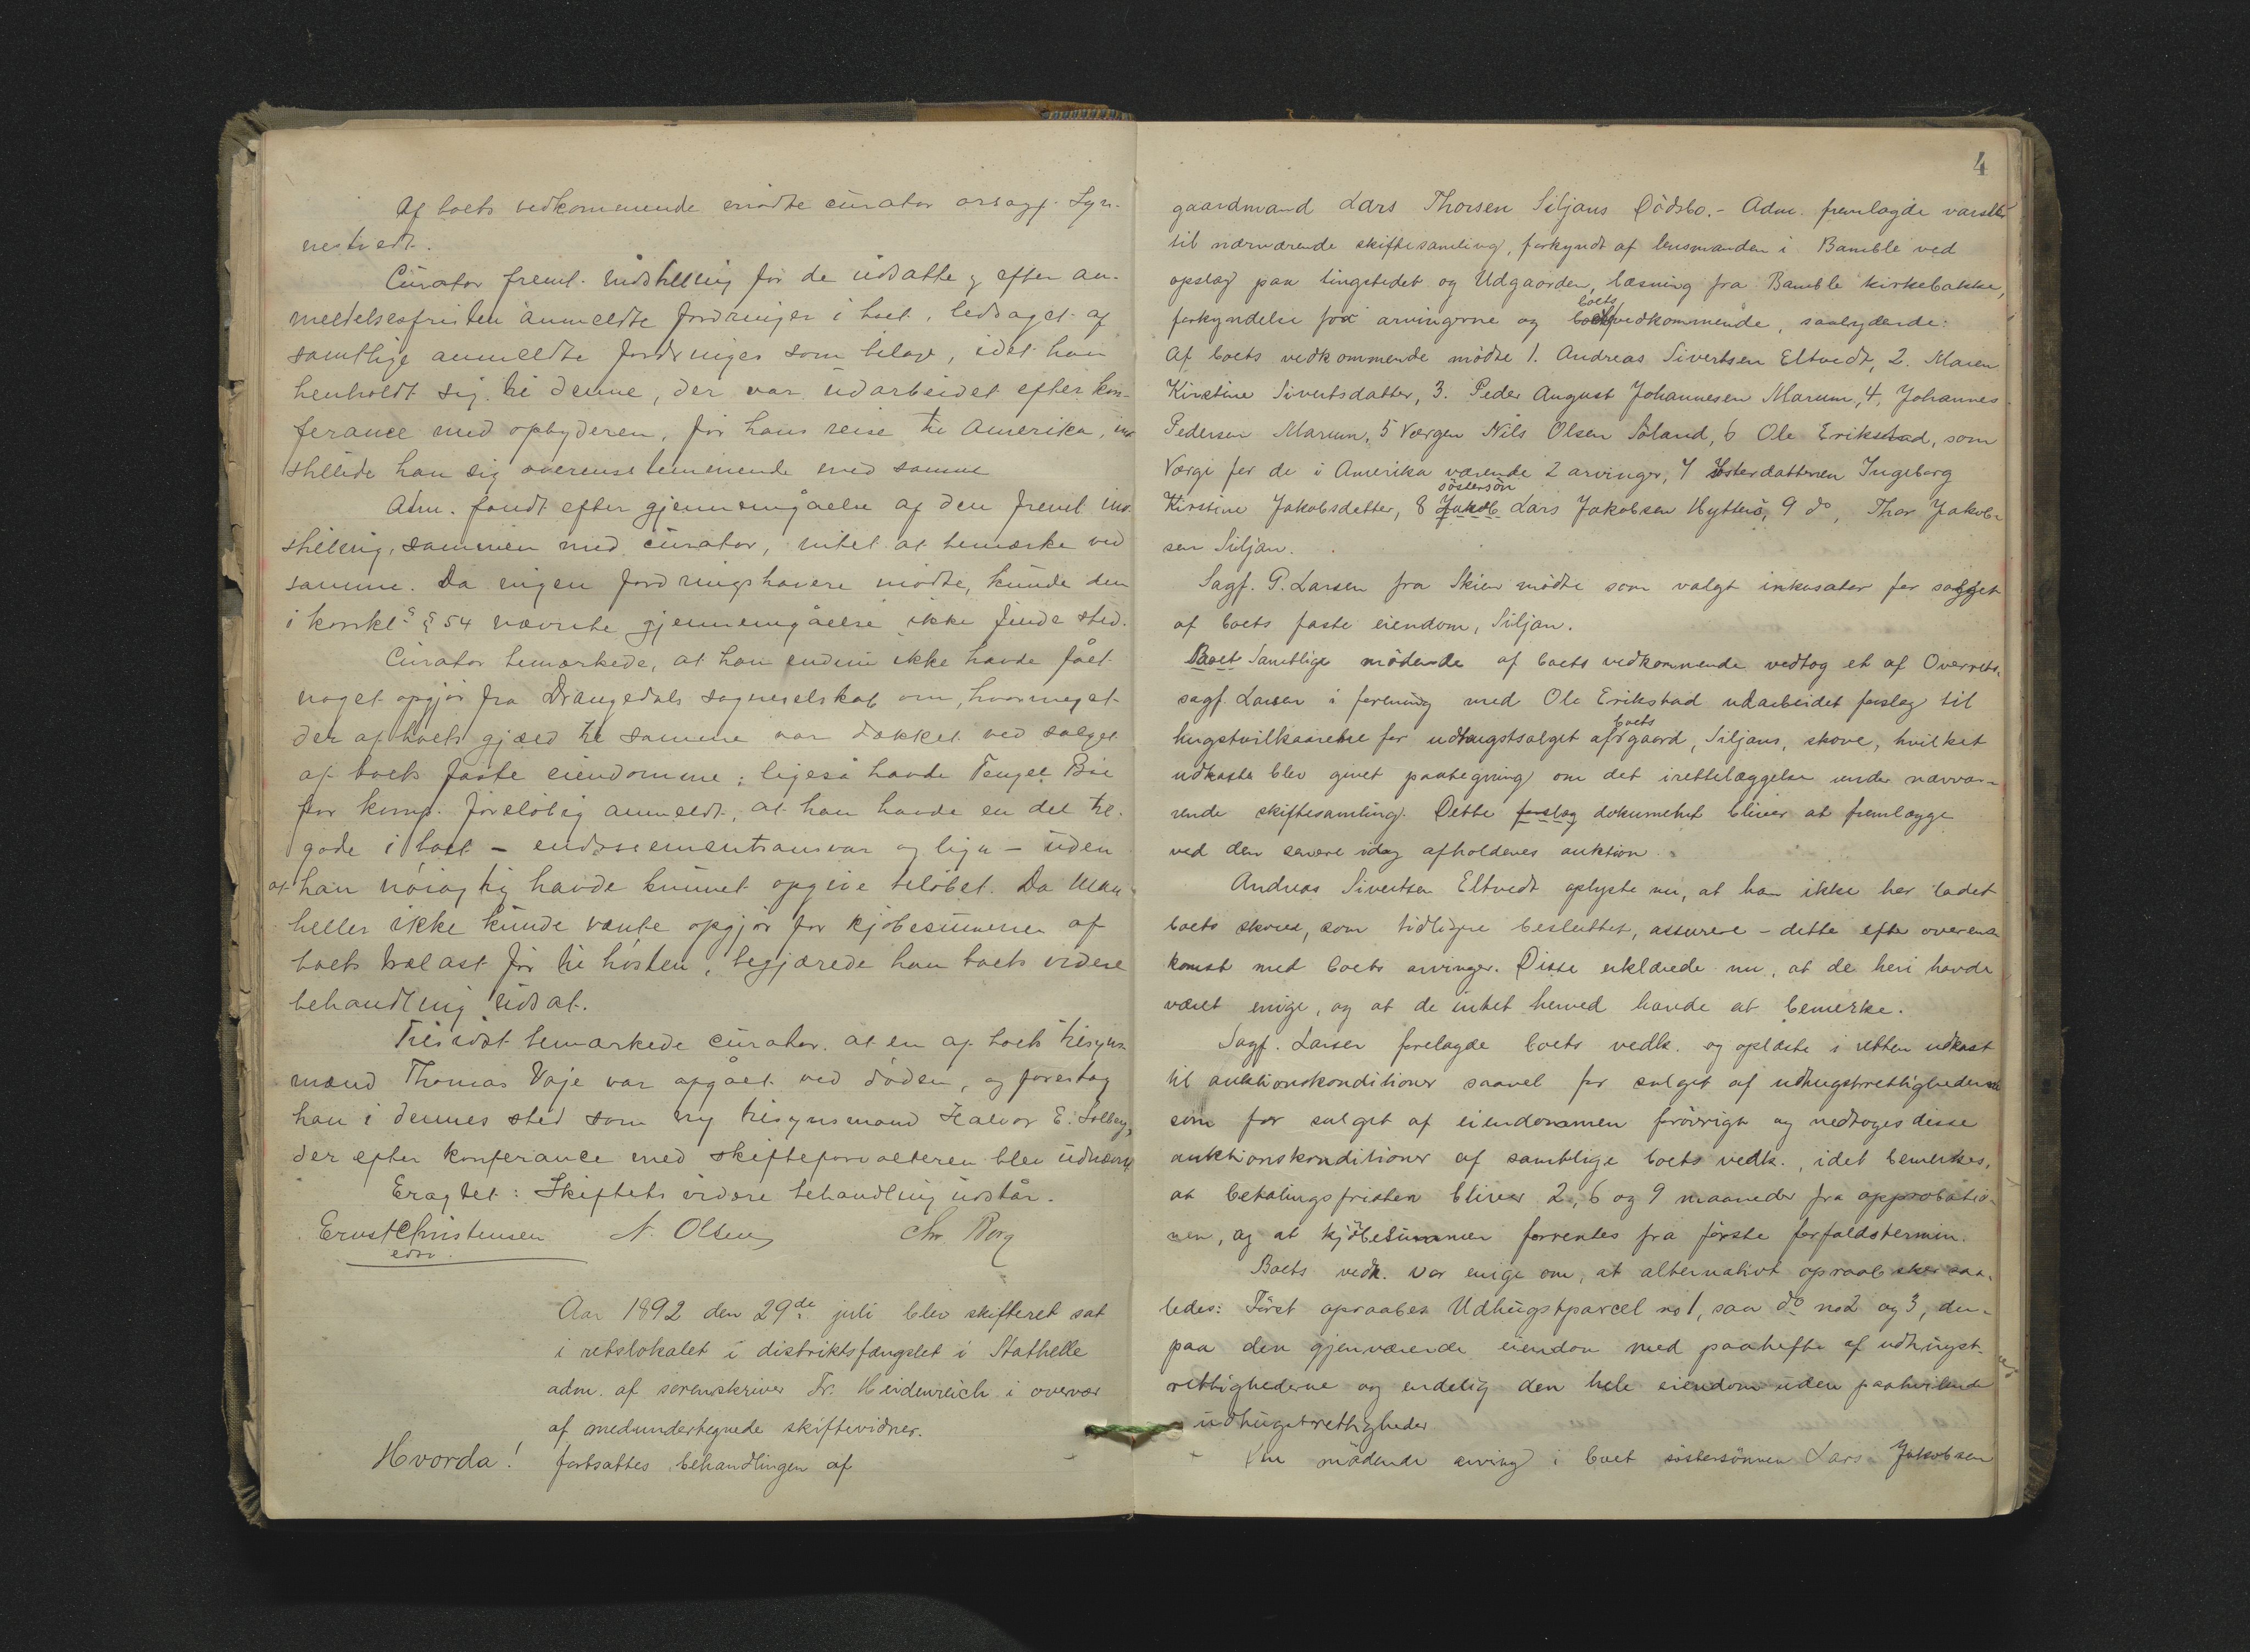 Af boets vedkommende mødte curator orsagf. Lyn-
nestvedt.
Curator freml. indstilling for de udsatte og efter an-
meldelsesfristen anmeldte fordringer i boet, ledsaget af
samtlige anmeldte fordringer som bilag, idet han
henholdt sig til denne, der var udarbeidet efter kon-
ferance med opbyderen, før hans reise til Amerika, ind
stillede han sig overensstemmende med samme
Adm. fandt efter gjennemgåelse af den freml. ind-
stilling, sammen med curator, intet at bemærke ved
samme. Da ingen fordringshavere mødte, kunde den
i konkl. § 54 nævnte gjennemgåelse ikke finde sted.
Curator bemærkede, at han endnu ikke havde fået
noget opgjør fra Drangedals sogneselskab om, hvormeget
der af boets gjæld til samme var dækket ved salget
af boets faste eiendomme; ligeså havde Tengel Bøe
for komp. foreløbig anmeldt, at han havde en del til-
gode i boet - endossementsansvar og lign - uden
at han nøiagtig havde kunnet opgive beløbet. Da man
heller ikke kunde vente opgjør for kjøbesummen af
boets trælast før til høsten, begjærede han boets videre
behandling udsat.
Tilsidst bemærkede curator, at en af boets tilsyns-
mænd Thomas Vaje var afgået ved døden, og foreslog
han i dennes sted som ny tilsynsmand Halvor E. Solberg,
der efter konferance med skifteforvalteren blev udnævnt
Eragtet: Skiftets videre behandling udstår.
Ernst Christensen N. Olsen Chr. Borg
edsv.
Aar 1892 den 29de juli blev skifteret sat
i retslokalet i distriktsfængslet i Stathelle
adm. af sorenskriver Fr. Heidenreich i overvær
af medundertegnede skiftevidner.
Hvorda! fortsattes behandlingen af
4
gaardmand Lars Thorsen Siljans Dödsbo. - Adm. fremlagde varsel
til nærværende skiftesamling, forkyndt af lensmanden i Bamble ved
opslag paa tingstedet og Udgaarden, læsning fra Bamble kirkebakke,
boets
forkyndelse for arvingerne og vedkommende, saalydende:
Af boets vedkommende mödte 1. Andreas Sivertsen Eltvedt, 2. Maren
Kirstine Sivertsdatter, 3. Peder August Johannesen Marum, 4, Johannes
Pedersen Marum, 5 Værgen Nils Olsen Søland, 6 Ole Erikstad, som
Værge for de i Amerika værende 2 arvinger, 7 Søsterdatteren Ingeborg
søstersøn
Kirstine Jakobsdatter, 8 Jakob Lars Jakobsen Hytten, 9 do, Thor Jakob-
sen Siljan.
Sagf. G. Larsen fra Skien mödte som valgt inkasator for salget
af boets faste eiendom, Siljan.
Boet Samtlige mödende af boets vedkommende vedtog et af Overrets-
sagf. Larsen i forening med Ole Erikstad udarbeidet forslag til
boets
hugstvilkaarene for udhugstsalget af gaard, Siljans, skove, hvilket
udkast blev givet paategning om det irettelæggelse under nærvæ-
rende skiftesamling. Dette forslag dokument bliver at fremlægge
ved den senere idag afholdenes auktion.
Andreas Sivertsen Eltvedt oplyste nu, at han ikke har ladet
boets skove, som tidligere besluttet, assurere - dette efter overens
komst med boets arvinger. Disse erklærede nu, at de heri havde
været enige, og at de intet herved havde at bemerke.
Sagf. Larsen forelagde boets vedk. og oplæste i retten udkast
til auktionskonditioner saavel for salget af udhugstrettighederne
som for salget af eiendommen forövrigt og vedtoges disse
auktionskonditioner af samtlige boets vedk., idet bemerkes,
at betalingsfristen bliver 2, 6 og 9 maaneder fra approbatio-
nen, og at kjöbesummen forrentes fra förste forfaldstermin.
Boets vedk. var enige om, at alternativt opraab sker saa-
ledes: Först opraabes Udhugstparcel no 1, saa do no 2 og 3, der-
paa den gjenværende eiendom med paahefte af udhugst-
rettighederne og endelig den hele eiendom uden paahvilende
udhugstrettigheder
Den mödende arving i boet söstersönnen Lars Jakobsen